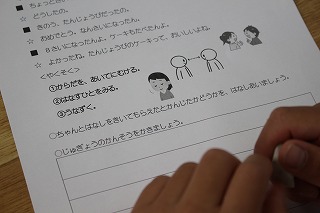 ■ ちょっと
☆ どうしたの。
■ きのう、たんじょうびだったの。
☆ おめでとう。なんさいになったの。
■ 8さいになったんよ。ケーキもたべたんよ。
☆ よかったね。たんじょうびのケーキって、おいしいよね。
<やくそく>
①からだを、あいてにむける。
②はなすひとをみる。
③うなずく。
○ちゃんとはなしをきいてもらえたとかんじたかどうかを、はなしあいましょう。
○じゅぎょうのかんそうをかきましょう。